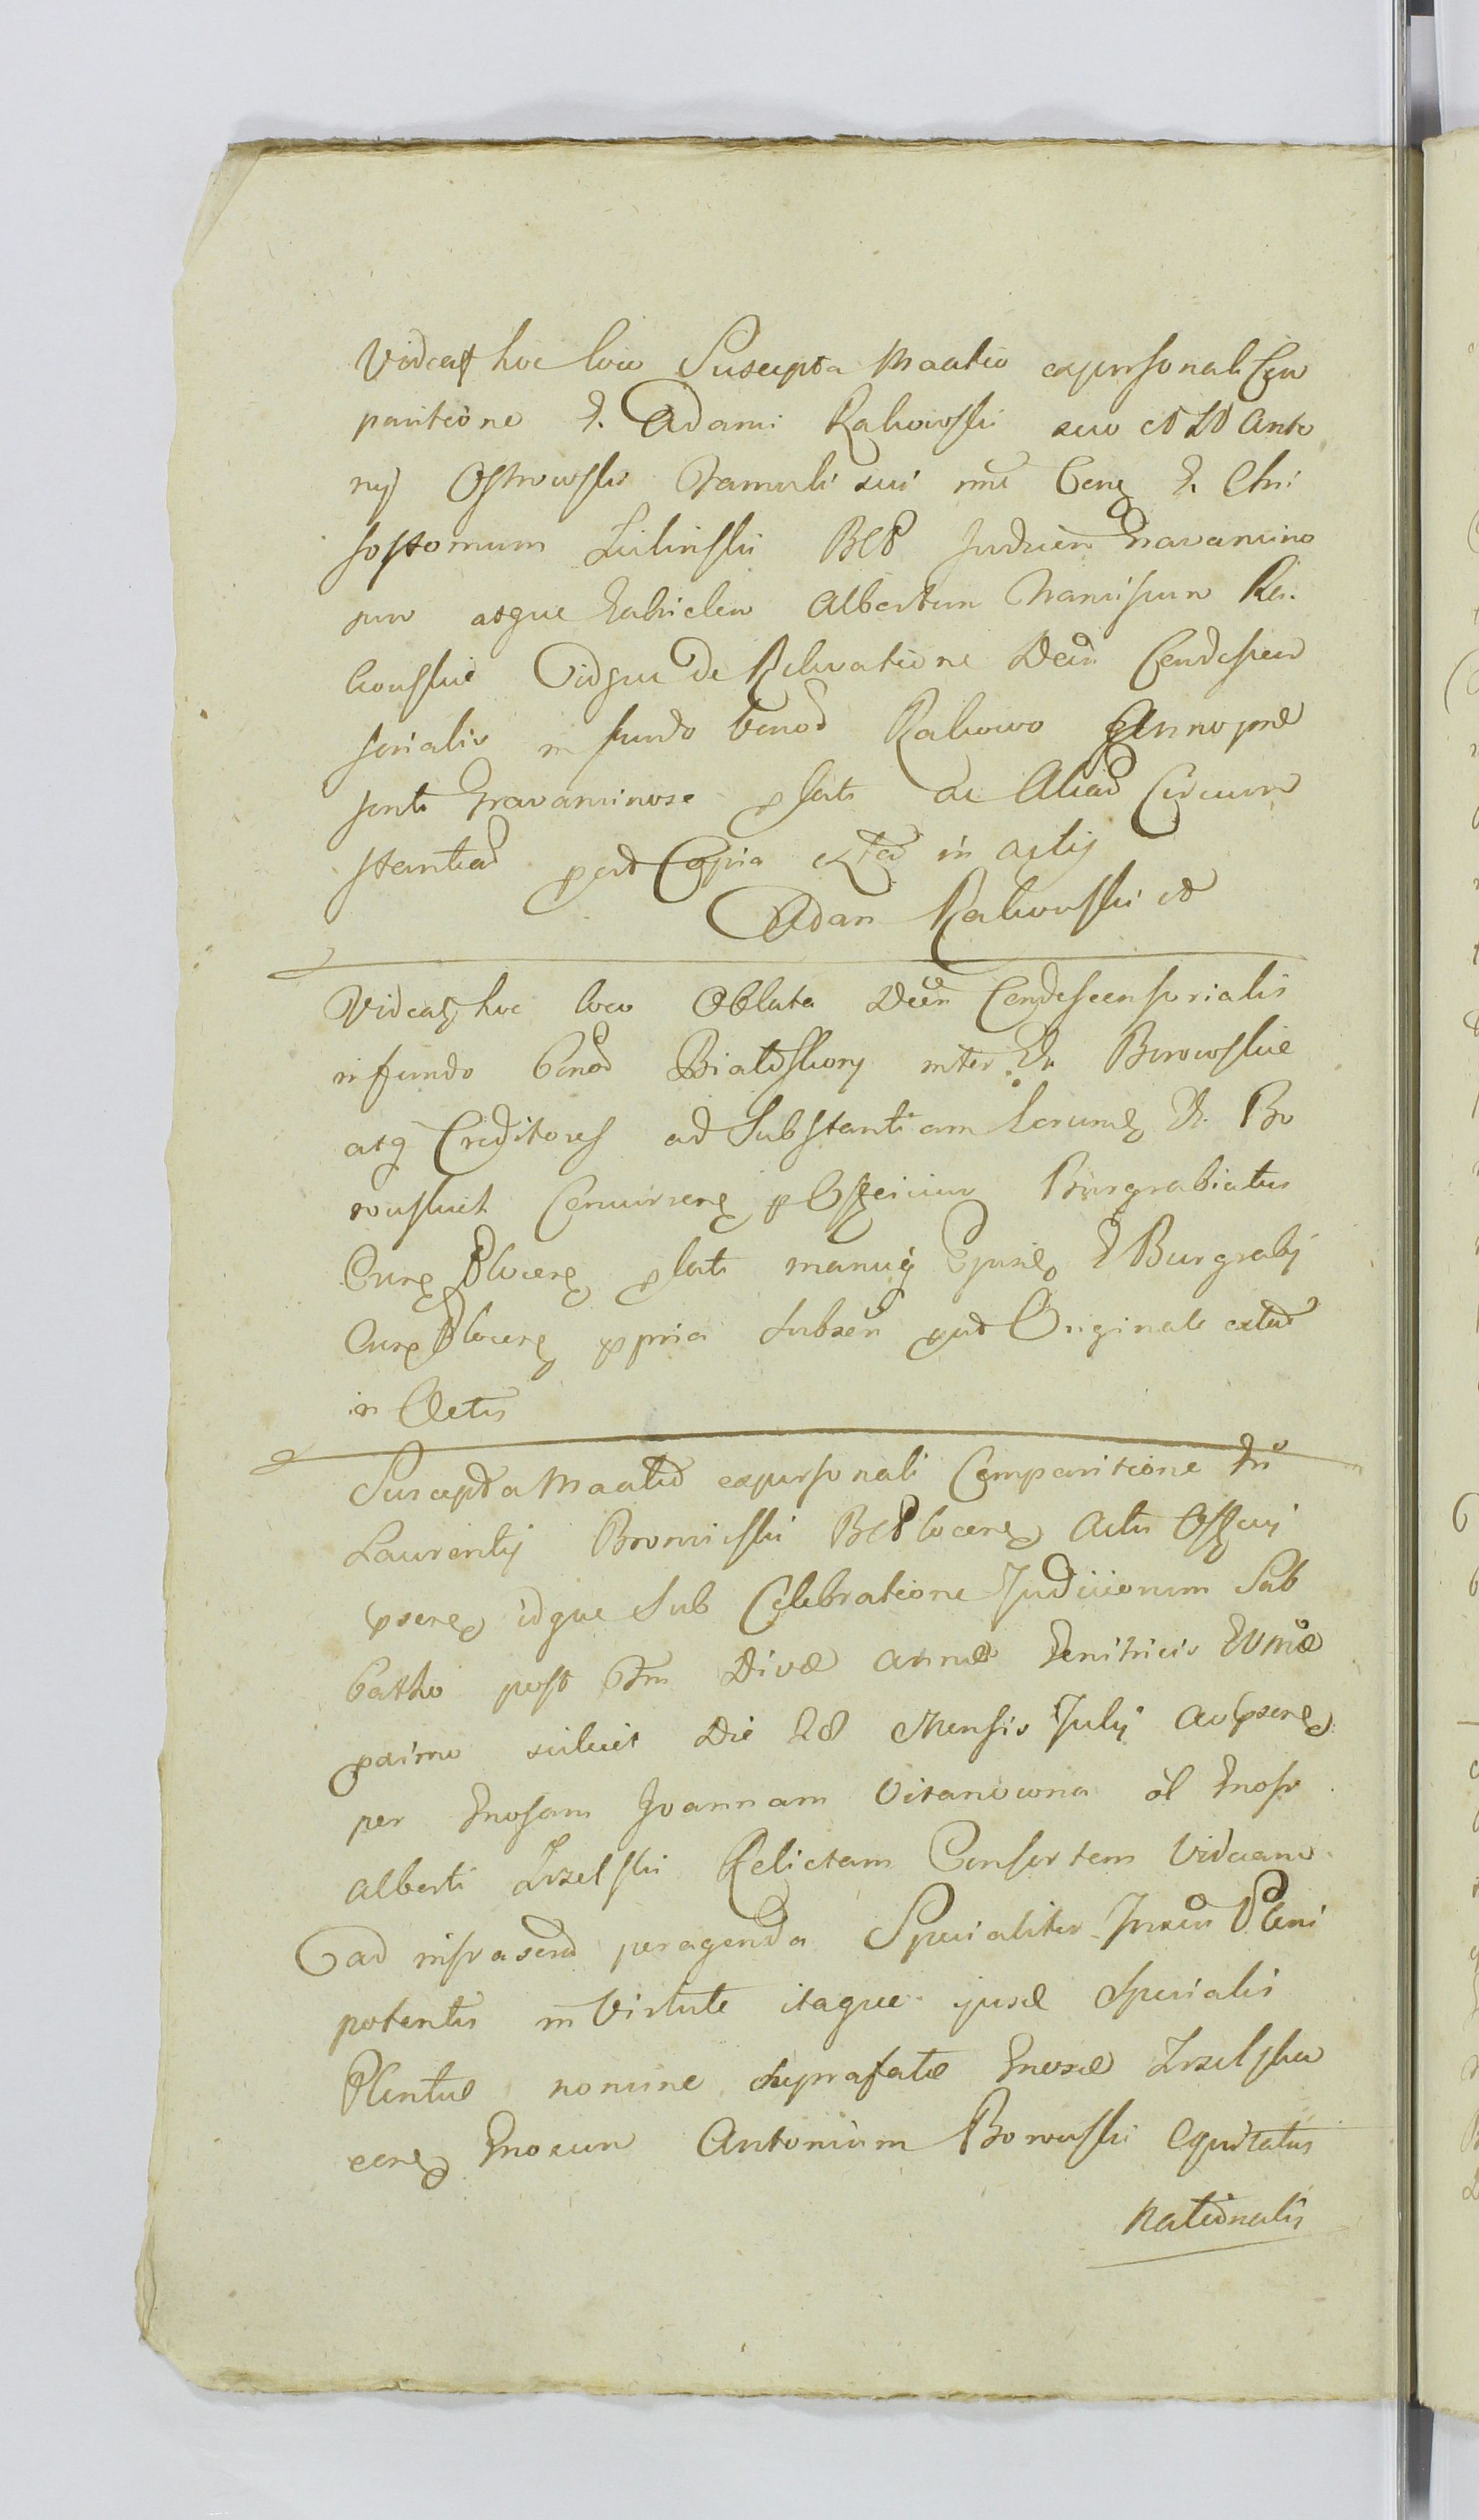 Videat hoc loco Suscepta Maatio expersonali Com
paritione G. Adami Rakowski suo et G Anto
nij Ostrowski Famuli sui nne Cong G. Chri
sostomum Lilinski BCP Judicem Gravamino
sum atque Gabrielem Albertum Narcissum Ra
kowskie idque de Relevatione Decr Condescen
sorialis in fundo bonor Rakowo Anno prae
senti Gravaminose plati ac Aliar Circum
stantiar prt Copia extat in actis
Adam Rakowski et
Videat hoc loco Oblata Decr Condescensorialis
in fundo bonor Białoskory inter G. Borowskie
atq Creditores ad Substantiam eorund G. Bo
rowskich Convicene p Officium Burgrabiatus
Cure Plocen plati manuq Ejusd G Burgrabij
Cure Plocen ppria Subscr prt Originale extat
in Actis
Suscepta Maatio expersonali Comparitione Gn
Laurentij Bromirski BCPlocen Actu Officij
psen idque Sub Celebratione Judiciorum Sab
batho post Ftm Divæ Annæ Genitricis BVMæ
primo scilicet Die 28 Mensis Julij Ao psen
per Gnosam Joannam Vitanowna ol Gnosi
Alberti Zrzelski Relictam Consortem Viduam
ad infrascrip peragenda Specialiter Inscr Pleni
potentis in Virtute itaque ejusd Specialis
Plentiæ nomine suprafatæ Gnosæ Zrzelska
cong Gnosum Antonium Borowski Equitatus
Nationalis